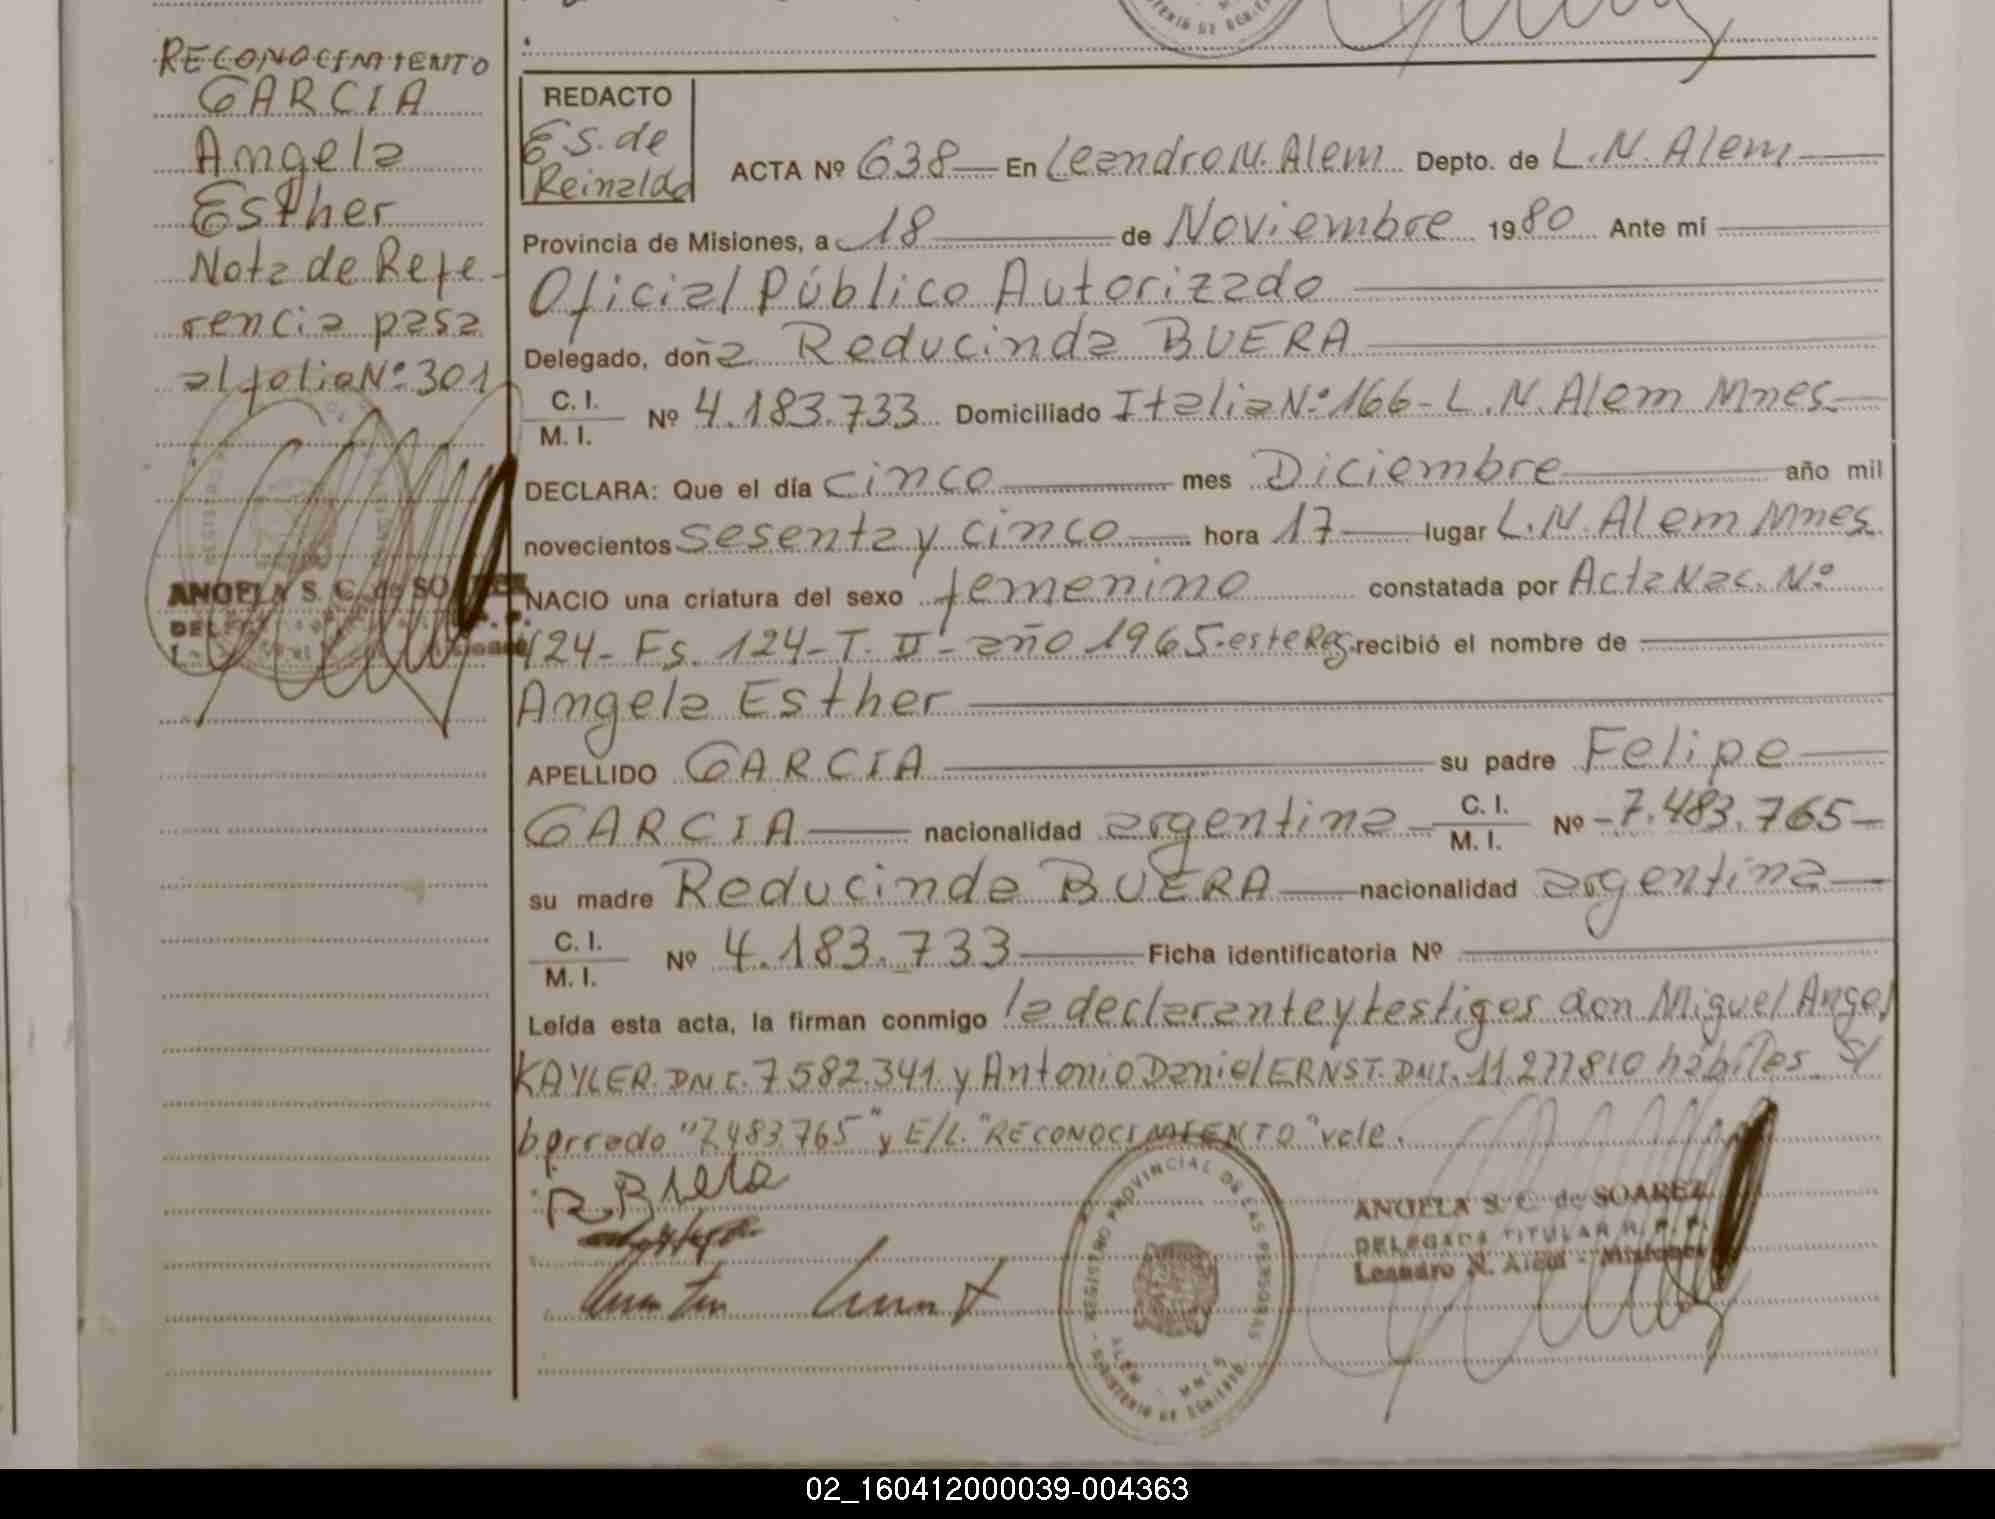 RECONOCIMIENTO
GARCIA
Angela
Esther
Nota de Refe-
rencia pasa
al folio Nº 301
ANGELA S. C. de SOAREZ
REDACTO
Es. de
Reinaldo
ACTA Nº 638 En Leandro N. Alem Depto. de L. N. Alem
Provincia de Misiones, a 18 de Noviembre 1980 Ante mí
Oficial Público Autorizado
Delegado, doña Reducinda BUERA
C. I. / M. I. Nº 4.183.733 Domiciliado Italia Nº 166- L. N. Alem Mnes.
DECLARA: Que el día cinco mes Diciembre año mil
novecientos sesenta y cinco hora 17 lugar L. N. Alem Mnes.
NACIO una criatura del sexo femenino constatada por Acta Nac. Nº
424- Fs. 124- T. II- año 1965- este Reg. recibió el nombre de
Angela Esther
APELLIDO GARCIA su padre Felipe
GARCIA nacionalidad argentina C. I. / M. I. Nº -7.483.765-
su madre Reducinda BUERA nacionalidad argentina
C. I. / M. I. Nº 4.183.733 Ficha identificatoria Nº
Leída esta acta, la firman conmigo la declarante y testigos don Miguel Angel
KAYLER. DNI. 7.582.341 y Antonio Daniel ERNST. DNI. 11.277810 hábiles. S/
borrado "7.483.765" y E/L. "RECONOCIMIENTO" vale.
REGISTRO PROVINCIAL DE LAS PERSONAS
ALEM - MNES
MINISTERIO DE GOBIERNO
ANGELA S. C. de SOAREZ
DELEGADA TITULAR R. P. P.
Leandro N. Alem - Misiones
02_160412000039-004363